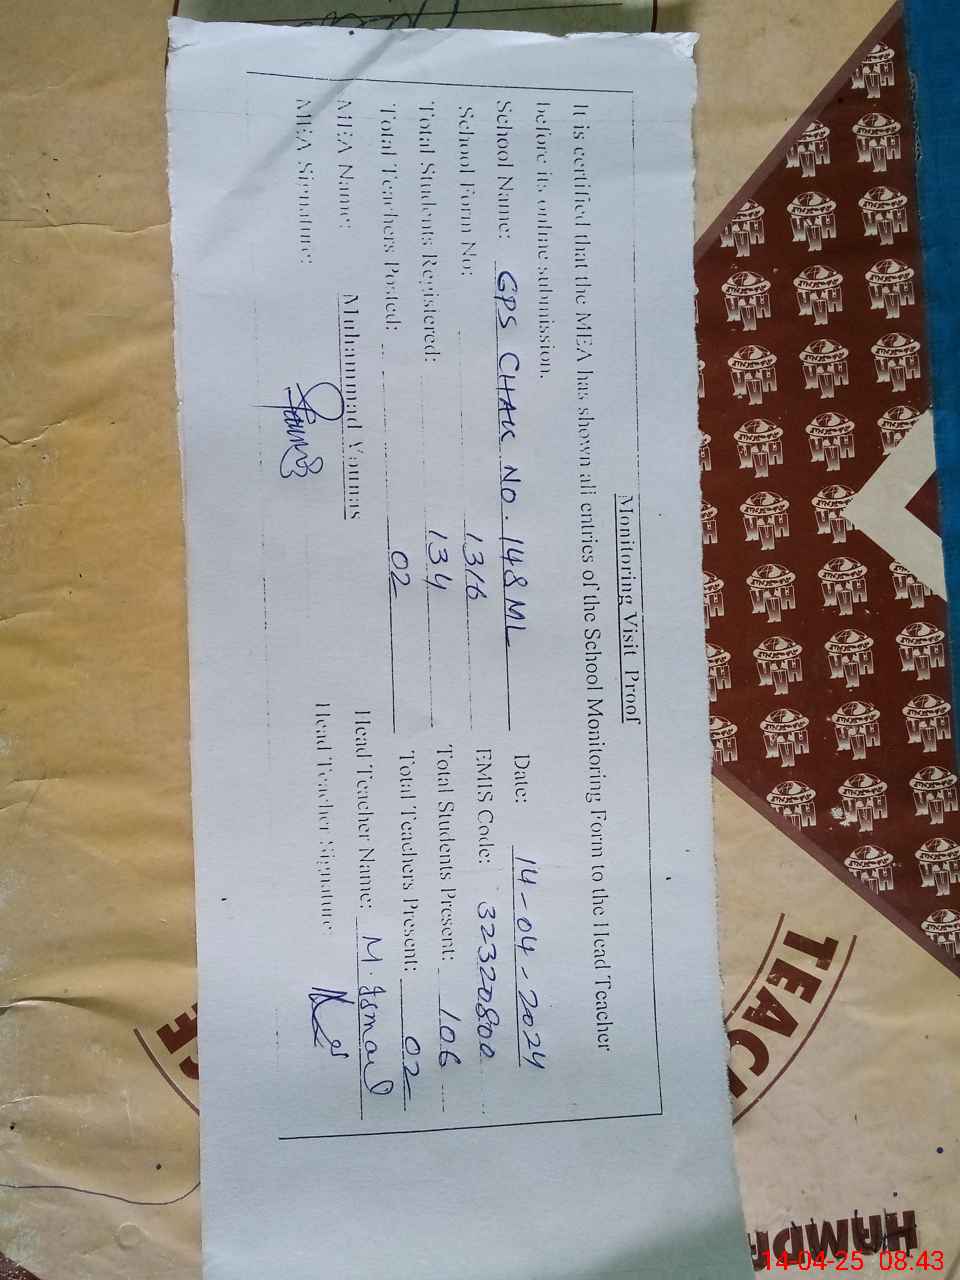 Monitoring Visit Proof
It is certified that the MEA has shown all entries of the School Monitoring Form to the Head Teacher
before its online submission.
School Name: GPS CHAK NO. 148 ML Date: 14-04-2024
School Form No: 1316 EMIS Code: 32320800
Total Students Registered: 134 Total Students Present: 106
Total Teachers Posted: 02 Total Teachers Present: 02
MEA Name: Muhammad Younas Head Teacher Name: M. Ismail
MEA Signature: Head Teacher Signature:
TEACH
CE
HAMDA
14-04-25 08:43